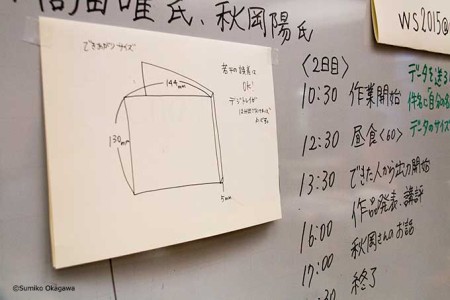 高田唯氏、秋岡陽氏
WS2015@
できあがりサイズ
144mm
130mm
5mm
若干の誤差は
OK!
〈2日目〉
10:30 作業開始
12:30 昼食〈60〉
13:30 できた人から出力開始
作品発表、講評
16:00 秋岡さんのお話
17:00 終了
:30
データを送る
件名「自分の名
データのサイズ
©Sumiko Okagawa